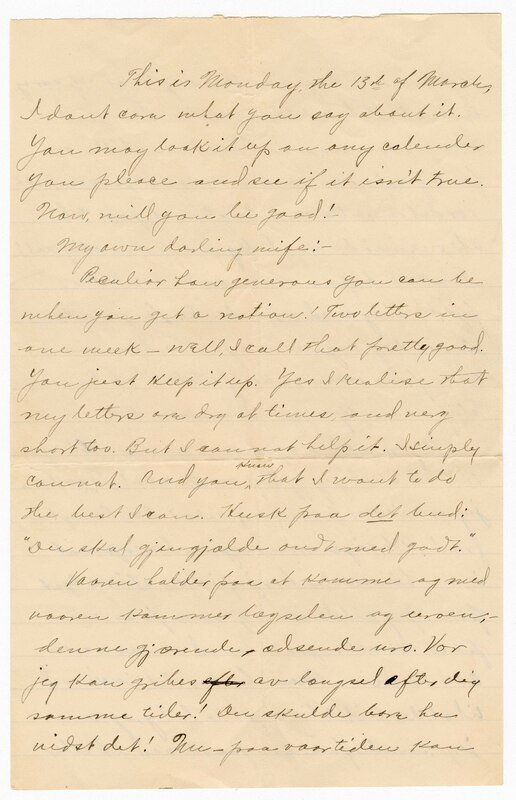 This is Monday, the 13th of March,
I dont care what you say about it.
You may look it up on any calender
you please and see if it isn't true.
Now, will you be good!-
My own darling wife:-
Peculiar how generous you can be
when you get a notion! Two letters in
one week - well, I call that pretty good.
You just keep it up. Yes I realise that
my letters are dry at times and very
short too. But I cannot help it. I simply
cannot. And you know that I want to do
the best I can. Husk paa det bud:
"Du skal gjengjælde ondt med godt."
Vaaren holder paa at komme og med
vaaren kommer længselen og uroen,-
denne gjærende, ædsende uro. Hvor
jeg kan gribes efter av længsel efter dig
somme tider! Du skulde bare ha
vidst det! Nu - paa vaartiden kan